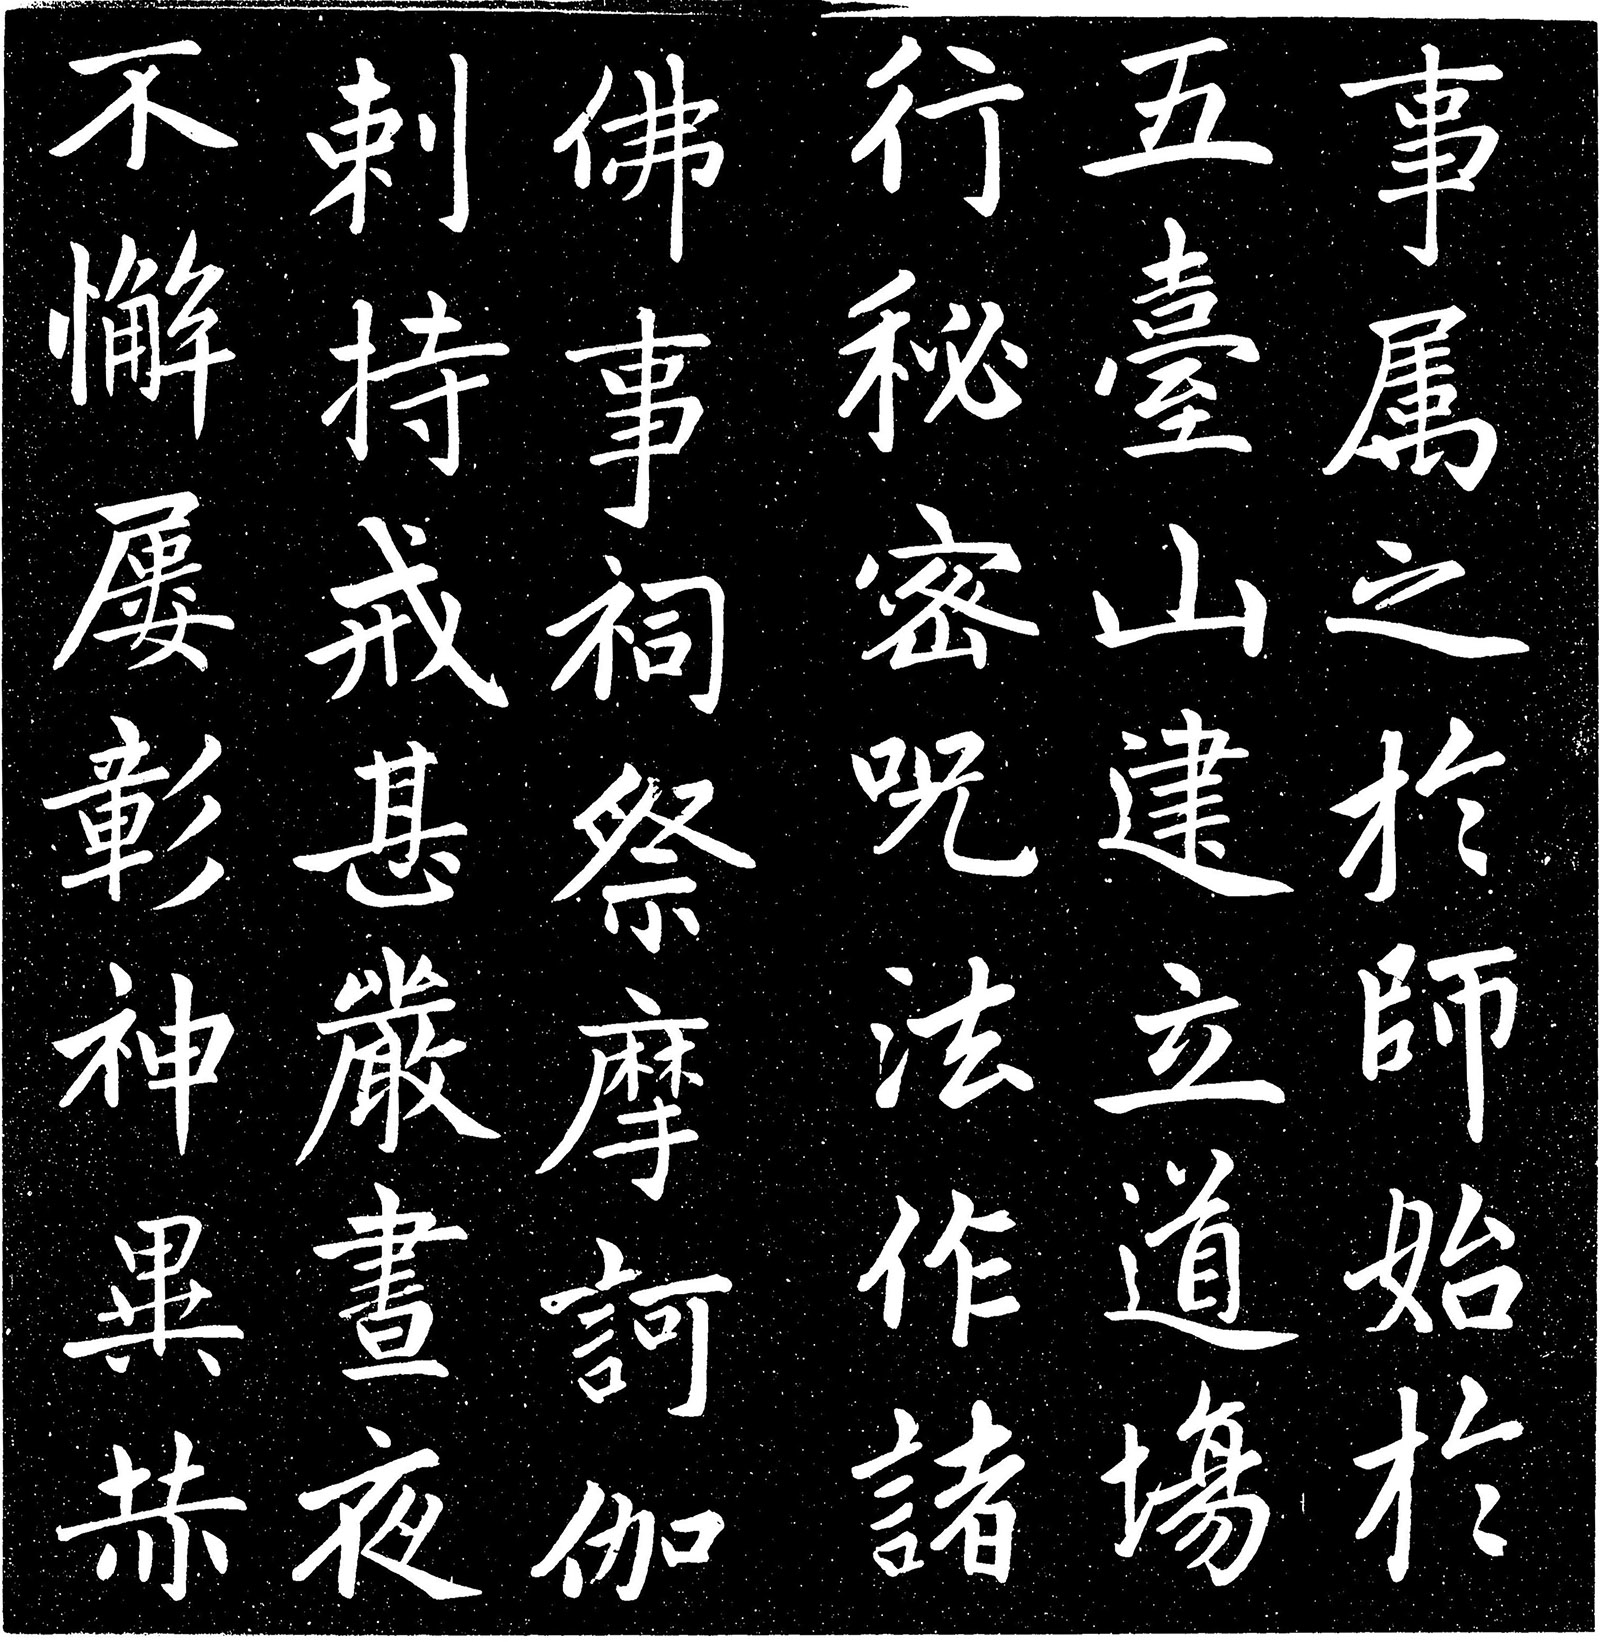 事属之於師始於
五臺山建立道場
行秘密呪法作諸
佛事祠祭摩訶伽
剌持戒甚嚴晝夜
不懈屢彰神異赫